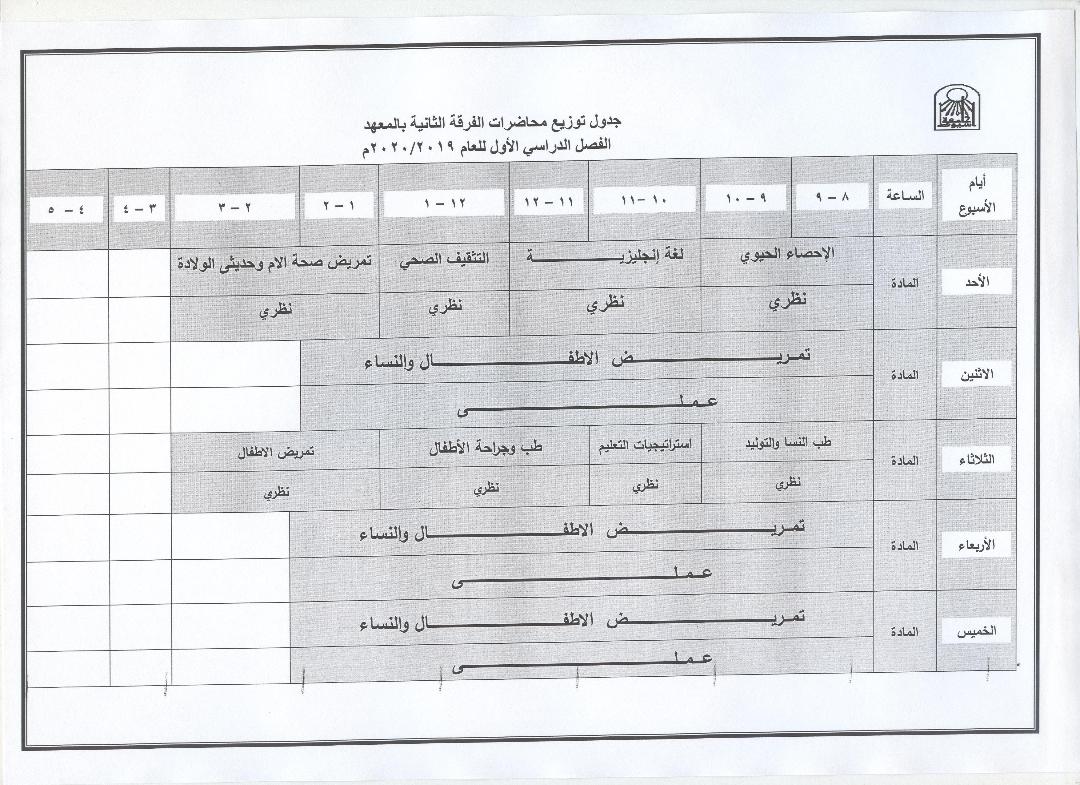 جدول توزيع محاضرات الفرقة الثانية بالمعهد
الفصل الدراسي الأول للعام ٢٠٢٠/٢٠١٩م
أيام الأسبوع الساعة ٨ – ٩ ٩ – ١٠ ١٠ – ١١ ١١ – ١٢ ١٢ – ١ ١ – ٢ ٢ – ٣ ٣ – ٤ ٤ – ٥
الأحد المادة الإحصاء الحيوي لغة إنجليزيـــــــــة التثقيف الصحي تمريض صحة الام وحديثى الولادة
نظري نظري نظري نظري
الاثنين المادة تمريـــــــــض الاطفـــــــــال والنساء
عـمـلـــــــــى
الثلاثاء المادة طب النسا والتوليد استراتيجيات التعليم طب وجراحة الأطفال تمريض الاطفال
نظري نظري نظري نظري
الأربعاء المادة تمريـــــــــض الاطفـــــــــال والنساء
عـمـلـــــــــى
الخميس المادة تمريـــــــــض الاطفـــــــــال والنساء
عـمـلـــــــــى